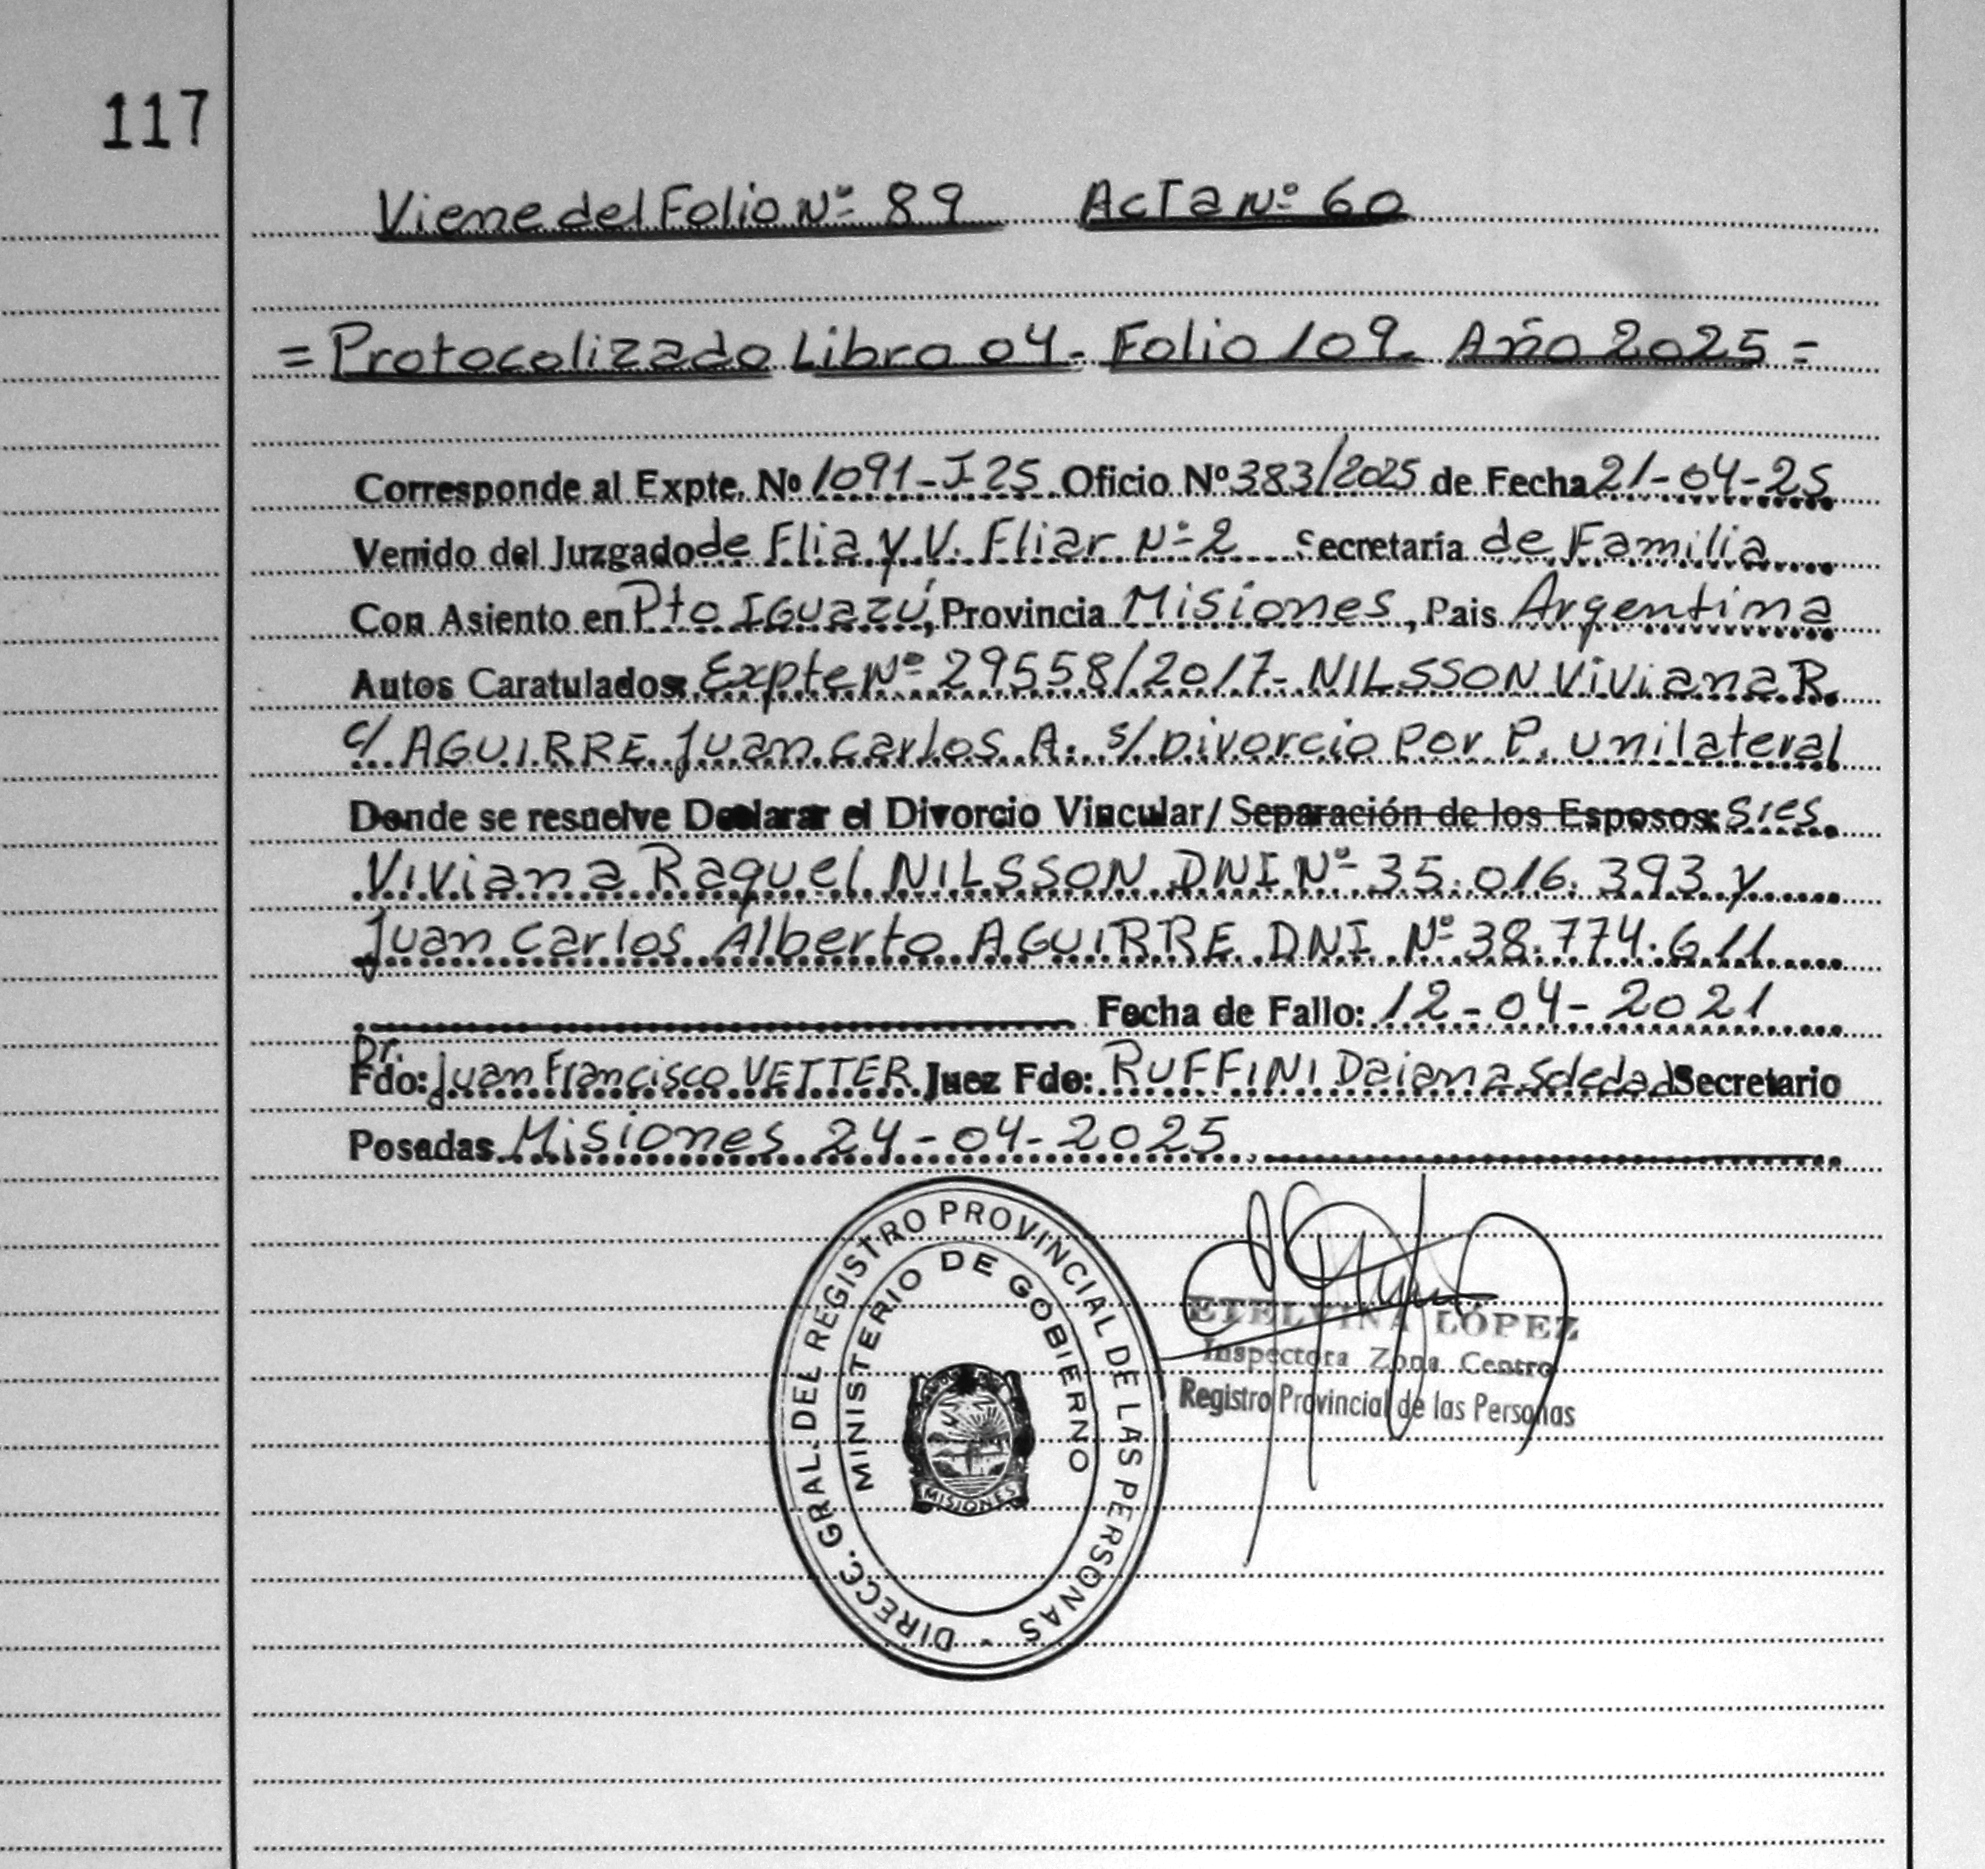 117
Viene del Folio Nº 89 Acta Nº 60
= Protocolizado Libro 04- Folio 109- Año 2025 =
Corresponde al Expte. Nº 1091-J-25 Oficio Nº 383/2025 de Fecha 21-04-25
Venido del Juzgado de Flia y V. Fliar Nº 2 Secretaría de Familia
Con Asiento en Pto IGuazú, Provincia Misiones, Pais Argentina
Autos Caratulados: Expte Nº 29558/2017- NILSSON Viviana R.
c/ AGUIRRE Juan Carlos A. s/ Divorcio Por P. unilateral
Donde se resuelve Declarar el Divorcio Vincular/ Separación de los Esposos: sres.
Viviana Raquel NILSSON DNI Nº 35.016.393 y
Juan Carlos Alberto AGUIRRE DNI Nº 38.774.611
Fecha de Fallo: 12-04-2021
Dr.
Fdo: Juan Francisco VETTER Juez Fdo: RUFFINI Daiana Soledad Secretario
Posadas Misiones 24-04-2025
DIRECC. GRAL. DEL REGISTRO PROVINCIAL DE LAS PERSONAS -
MINISTERIO DE GOBIERNO
MISIONES
ETELVINA LÓPEZ
Inspectora Zona Centro
Registro Provincial de las Personas